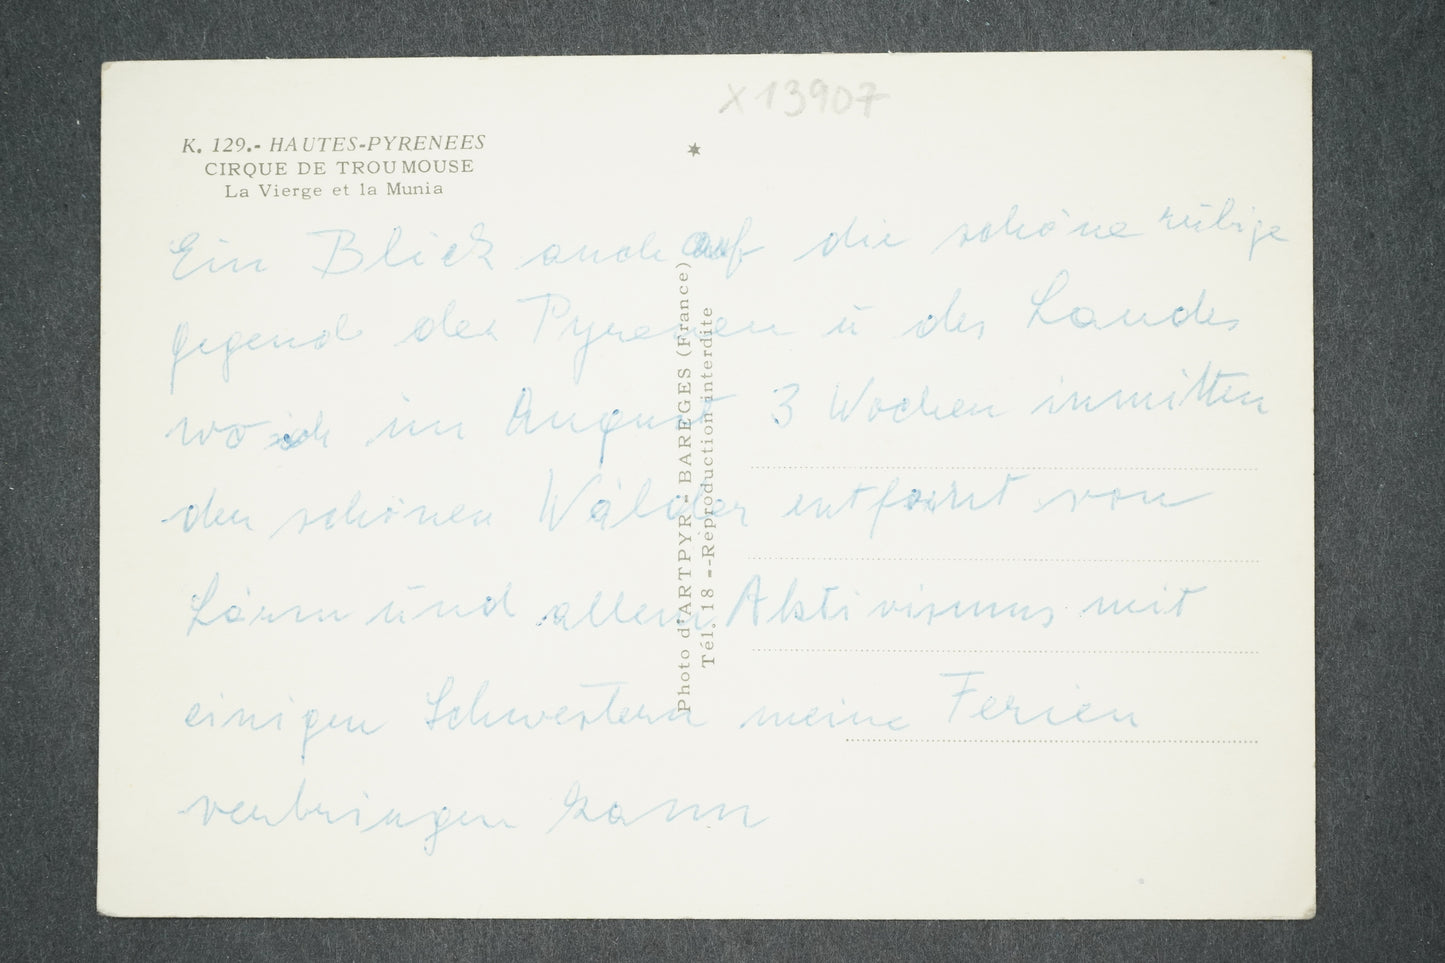 X 13907
K. 129.- HAUTES-PYRENEES
CIRQUE DE TROUMOUSE
La Vierge et la Munia
Ein Blick auch auf die schöne ruhige
gegend der Pyrenen ū des Landes
wo ich im August 3 Wochen inmitten
den schönen Wälder entfernt von
Lärm und allem Aktivismus mit
einigen Schwestern meine Ferien
verbringen kann
Photo d'ARTPYR - BAREGES (France)
Tél. 18 --Reproduction interdite